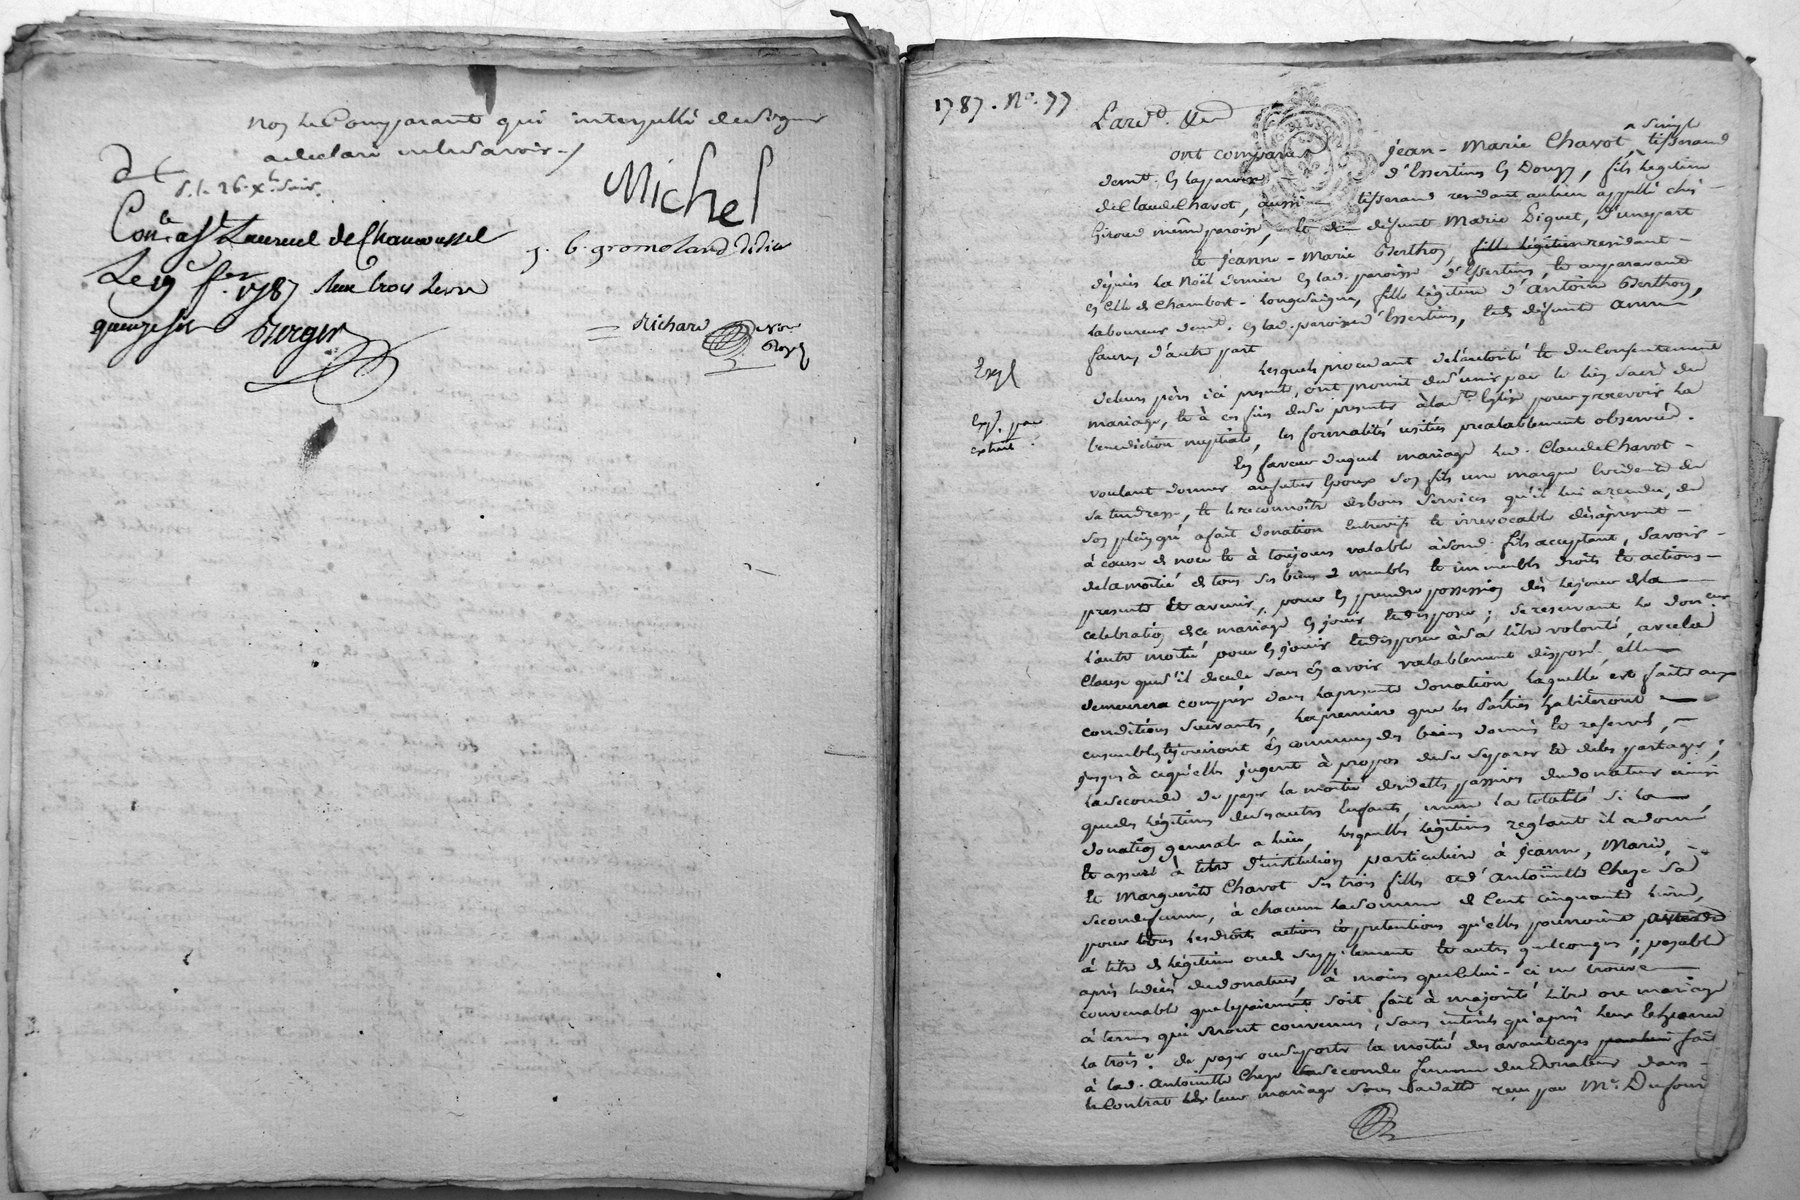 non le Comparant qui interpellé de signer
a declaré ne le savoir
Michel
Con.le à St Laurent de Chamousset
g. b. gromoland Didier
Le 19 f.er 1787 Reçu trois livres
quinze sols Berger
Richard no.re Royal
1787. N.o 77
Pard.t &a
ont comparu Jean-Marie Chavot, tisserand
demt. en la paroisse d'Essertines en Donzy, fils légitime
de Claude Chavot, aussi tisserand residant au lieu appellé chés
Giroud même paroisse, et de defunte Marie Piquet, d'une part
et Jeanne-Marie Berthon, fille légitime residant
depuis la Noël dernier en lad. paroisse d'Essertines, et auparavant
en celle de Chambost-Longesaigne, fille légitime d'Antoine Berthon,
laboureur demt. en lad. paroisse d'Essertines, et de defunte Anne
faure, d'autre part
Expé
Lesquels procedant de l'autorité et du Consentement
de leurs pères ici present, ont promit de s'unir par le lien sacré du
mariage, et à ces fins de se presenter à la Ste. Eglise pour y recevoir la
benediction nuptiale, les formalités usitées prealablement observées.
Exp. par
extrait
En faveur duquel mariage led. Claude Chavot
voulant donner au futur Epoux son fils une marque Evidente de
sa tendresse, et le reconnoitre des bons services qu'il lui a rendu, de
son plein gré a fait donation Entrevifs et irrevocable dès à present
à cause de noce et à toujours valable à sond. fils acceptant, savoir
de la moitié de tous ses biens meubles et immeubles droits et actions
presents et avenir, pour en prendre possession dès le jour de la
celebration de ce mariage en jouir et disposer; se reservant le donateur
l'autre moitié pour en jouir et disposer à sa libre volonté, avec la
Clause que s'il decede sans En avoir valablement disposé, elle
demeurera comprise dans la presente donation laquelle est faite aux
conditions suivantes, la premiere que les Parties habiteront
ensemble et jouiront En commun des biens donnés et reservés,
jusques à ce qu'elles jugent à propos de se separer et de les partager;
la seconde de payer la moitié des dettes passives du donateur ainsi
que les légitimes de ses autres Enfants, même la totalité si la
donation generale a lieu, lesquelles légitimes reglant il a donné
et assuré à titre d'institution particuliere à Jeanne, Marie,
et Marguerite Chavot ses trois filles et d'Antoinette Cheze sa
seconde femme, à chacune la somme de Cent cinquante livres,
pour tous les droits actions et pretentions qu'elles pourroient pretendre
à titre de légitime ou de supplement et autres quelconques; payable
après le décès du donateur, à moins que celui-ci ne trouve
convenable que le paiement soit fait à majorité libre ou mariage
à termes qui seront convenus, sans interêts qu'après leur Echeance
la trois.e de payer ou supporter la moitié des avantages fait
à lad. Antoinette Cheze seconde femme du Donateur dans
le Contrat de leur mariage sous sa datte reçu par Me. Dufour